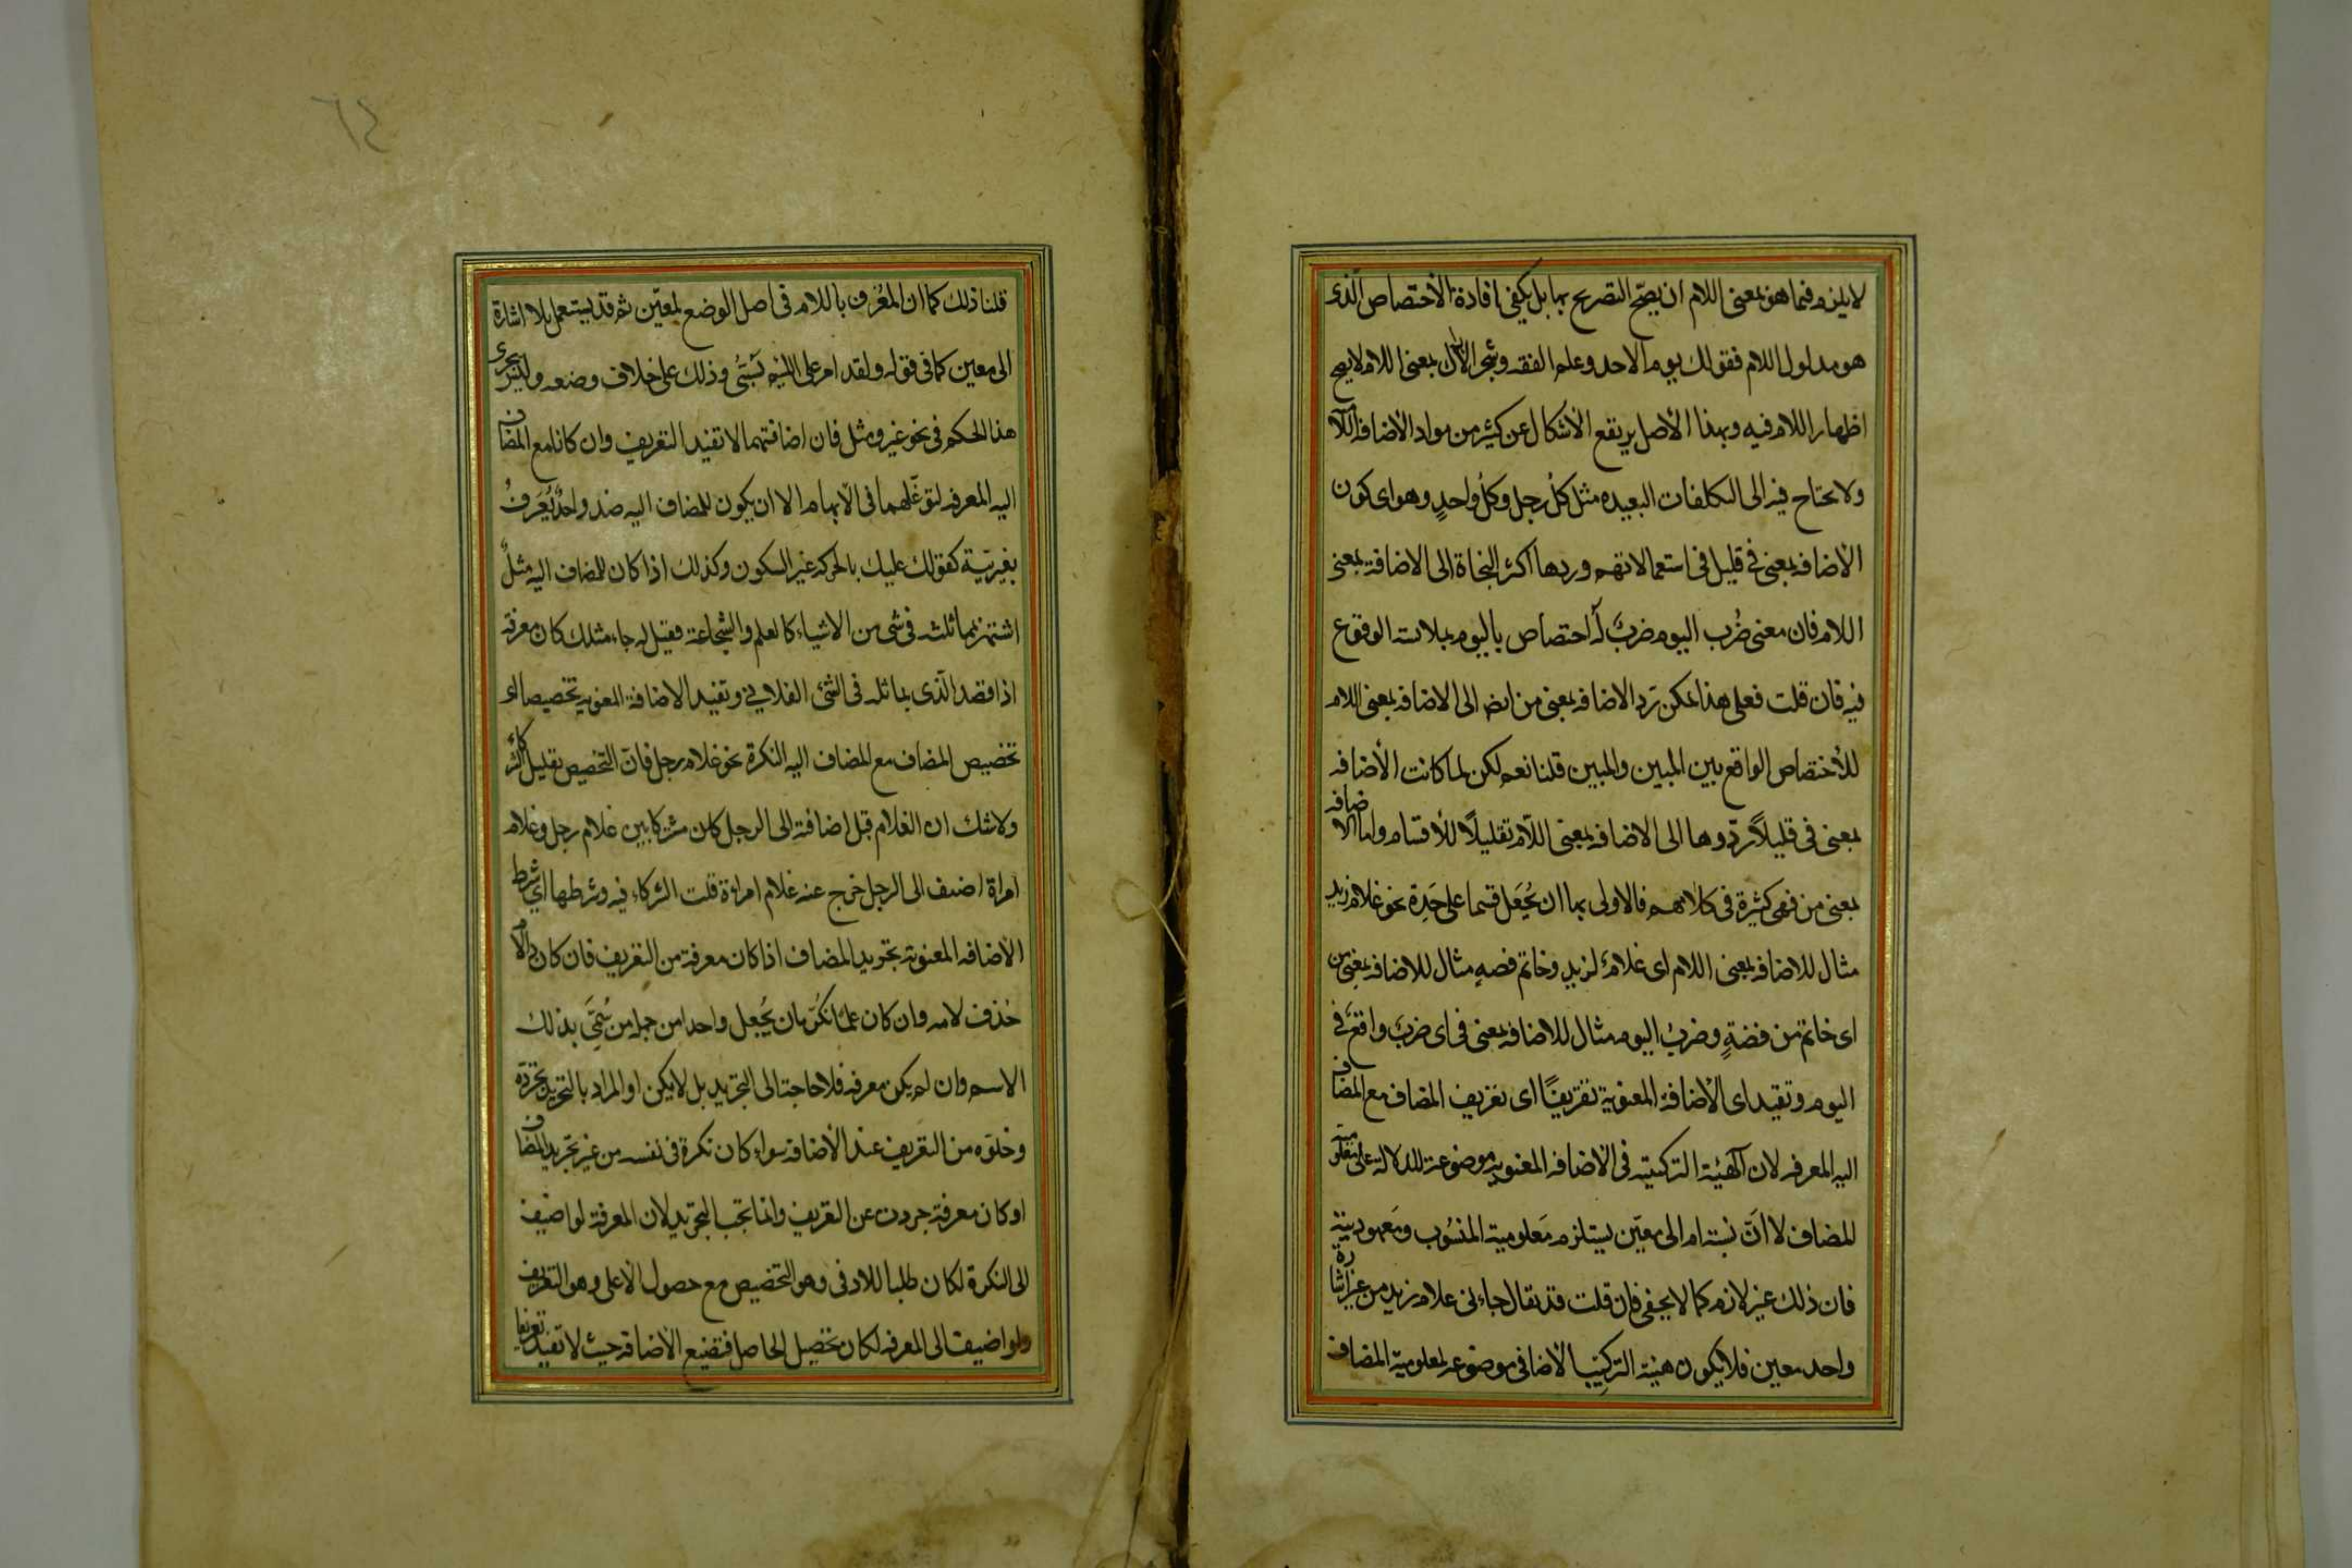 لا يلزم فيما هو بمعنى اللام ان يصح التصريح بها بل يكفي افادة الأختصاص الّذى
هو مدلول اللام فقولك يوم الاحد وعلم الفقه وشجر الاراك بمعنى اللام لا يصح
اظهار اللام فيه وبهذا الأصل يرتفع الأشكال عن كثير من مواد الأضافة اللا
ولا يحتاج فيه الى التكلفات البعيده مثل كلُ رجل وكلُ واحدٍ وهو اى كون
الأضافه بمعنى في قليل فى استعمالاتهم وردها اكثر النحاة الى الاضافة بمعنى
اللام فان معنى ضَرب اليوم ضربٌ له اختصاص باليوم بملابسة الوقوع
فيه فان قلت فعلى هذا يمكن رَد الاضافه بمعنى من ايضا الى الاضافه بمعنى اللام
للأختصاص الواقع بين المبين والمبين قلنا نعم لكن لما كانت الأضافه
بمعنى فى قليلاً ردّوها الى الاضافه بمعنى اللّام تقليلًا للأقسام واما الاضافه
بمعنى من فهى كثيرة فى كلامهم فالاولى بها ان يُجعَل قسما على حَدِة نحو غلام زيد
مثال للاضافه بمعنى اللام اى غلامٌ لزيد وخاتم فضهٍ مثال للاضافه بمعنى من
اى خاتم من فضةٍ وضربُ اليوم مثال للاضافه بمعنى فى اى ضربٌ واقعٌ فى
اليوم وتفيد اى الأضافة المعنوية تعريفًا اى تعريف المضاف مع المضاف
اليه المعرفه لان الهيئة التركيبية فى الأضافه المعنويه موضوعة للدلالة على معلومية
المضاف لا انّ نسبة امر الى معيّن يستلزم مَعلومية المنسُوب ومَعهودية
فان ذلك غير لازم كما لا يخفى فان قلت قد يقال جاءنى غلام زيد من غير اشارة
واحد معين فلا يكون هيئة التركيب الأضافى موضوعه لمعلومية المضاف
٦٤
قلنا ذلك كما ان المعُرف باللام فى اصل الوضع لمعيّن ثم قد يستعمل بلا اشارة
الى معين كما فى قوله ولقد امر على اللئيم يَسُبّنى وذلك على خلاف وضعه وليس يجرى
هذا الحكم فى نحو غير ومثل فان اضافتهما لا تفيد التعريف وان كانا مع المضاف
اليه المعرفه لتوغّلهما فى الأبهام الا ان يكون للمضاف اليه ضد واحدٌ يُعرَفُ
بغيريّة كقولك عليك بالحركة غير السكون وكذلك اذا كان للمضاف اليه مثلٌ
اشتهر بمماثلته فى شى من الاشياء كالعلم والشجاعة فقيل له جاء مثلك كان معرفه
اذا قصد الّذى يماثله فى الشئ الفلانى وتفيد الاضافة المعنويه تخصيصا اى
تخصيص المضاف مع المضاف اليه النكرة نحو غلام رجل فانّ التخصيص تقليل الشركاء
ولا شك ان الغلام قبل اضافته الى الرجل كان مشتركا بين غلام رجل وغلام
امراة اضيف الى الرجل خرج عنه غلام امراة قلت الشركاء فيه وشرطها اى شرط
الأضافه المعنوية تجريد المضاف اذا كان معرفة من التعريف فان كان ذا اللام
حُذف لامه وان كان علمًا نكّر بان يُجعل واحدا من جملة من سُمّىَ بذلك
الاسم وان لم يكن معرفه فلا حاجة الى التجريد بل لا يمكن او المراد بالتجريد تجرّده
وخلوّه من التعريف عند الأضافة سواء كان نكرة فى نفسه من غير تجريد المضاف
او كان معرفة جردت عن التعريف وانما يجب التجريد لان المعرفة لو اضيف
الى النكرة لكان طلبا للادنى وهو التخصيص مع حصول الأعلى وهو التعريف
ولو اضيفت الى المعرفه لكان تحصيل الحاصل فتضيع الأضافة حيث لا تفيد تعريفا